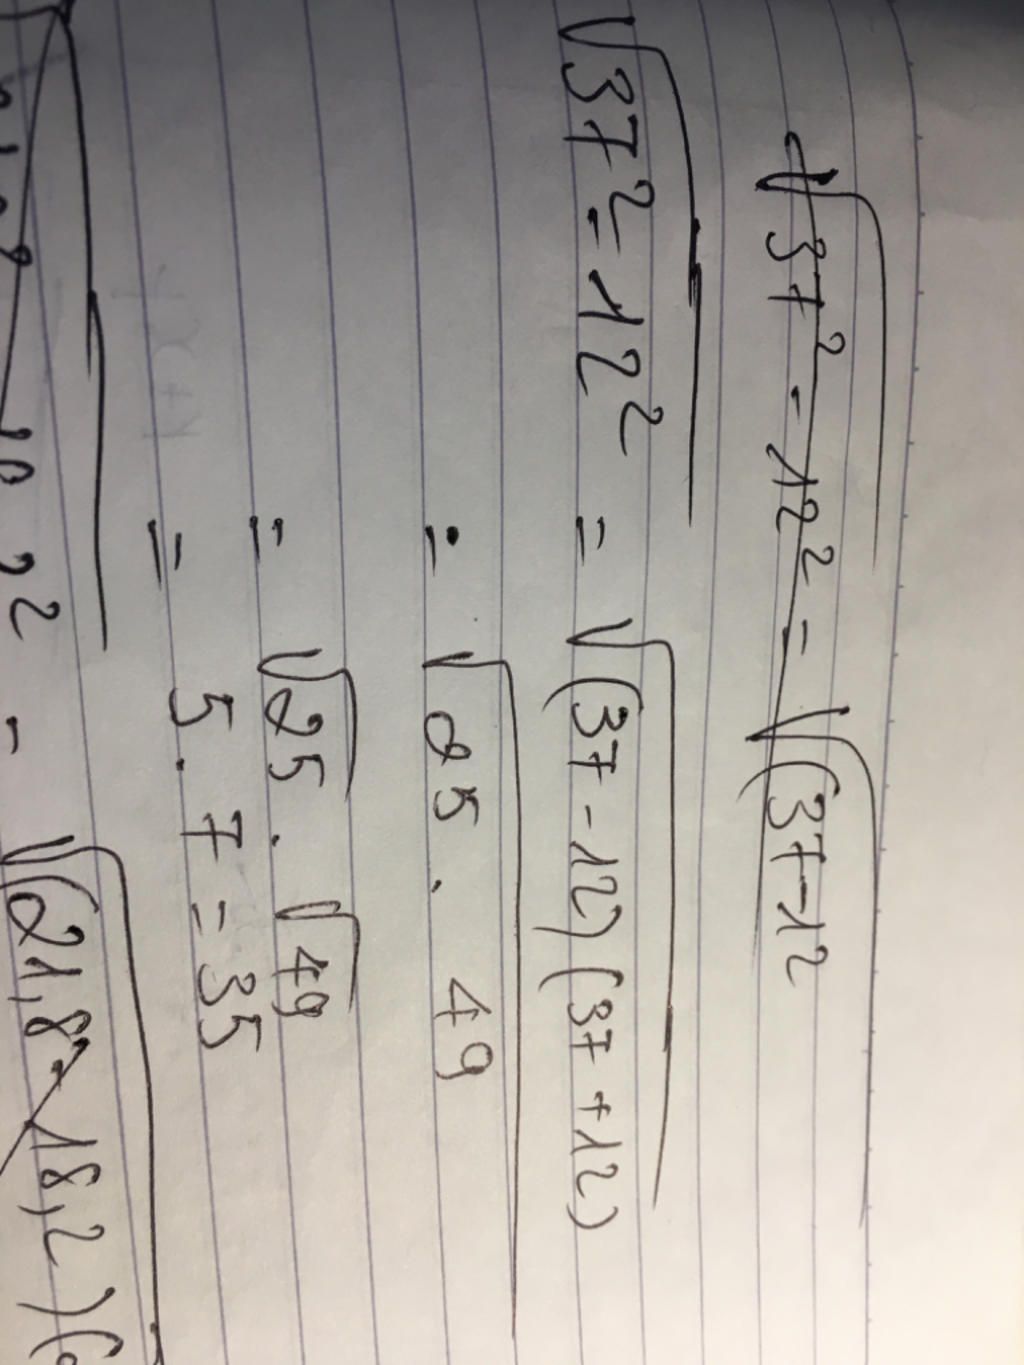 √37² - 12² = √(37-12
√37² - 12² = √(37-12)(37+12)
= √25 . 49
= √25 . √49
= 5 . 7 = 35
= √(21,8-18,2)(